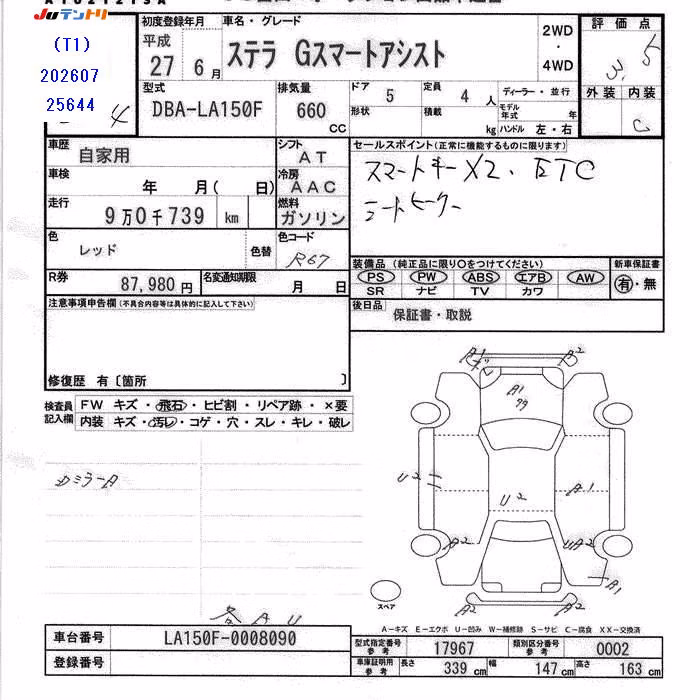 JUテントリ
(T1)
202607
25644
4
初度登録年月
平成
27 6月
車名・グレード
ステラ Gスマートアシスト
2WD
・
4WD
評価点
3.5
外装 内装
C
型式
DBA-LA150F
排気量
660
CC
ドア 5
定員 4 人
ディーラー・並行
形状
積載 kg
モデル年式 年
ハンドル 左・右
車歴 自家用
シフト AT
車検 年 月( 日)
冷房 AAC
走行 9万0千739 km
燃料 ガソリン
色 レッド 色替
色コード R67
R券 87,980円
名変通知期限 月 日
セールスポイント(正常に機能するものに限ります)
スマートキーX2、ETC
シートヒーター
装備品 (純正品に限り○をつけてください)
PS PW ABS エアB AW
SR ナビ TV カワ
新車保証書
有・無
後日品 保証書・取説
注意事項申告欄(不具合内容等は具体的に記入して下さい)
修復歴 有〔箇所 〕
検査員記入欄
FW キズ・飛石・ヒビ割・リペア跡・×要
内装 キズ・汚レ・コゲ・穴・スレ・キレ・破レ
カミラーA
各AU
A1
A2
A1
U2
U2
A1
A2
UA2
A1
A2
A2
スペア
A-キズ E-エクボ U-凹み W-補修跡 S-サビ C-腐食 XX-交換済
車台番号 LA150F-0008090
登録番号
型式指定番号 参考 17967
類別区分番号 参考 0002
車庫証明用 参考
長さ 339 cm 幅 147 cm 高さ 163 cm